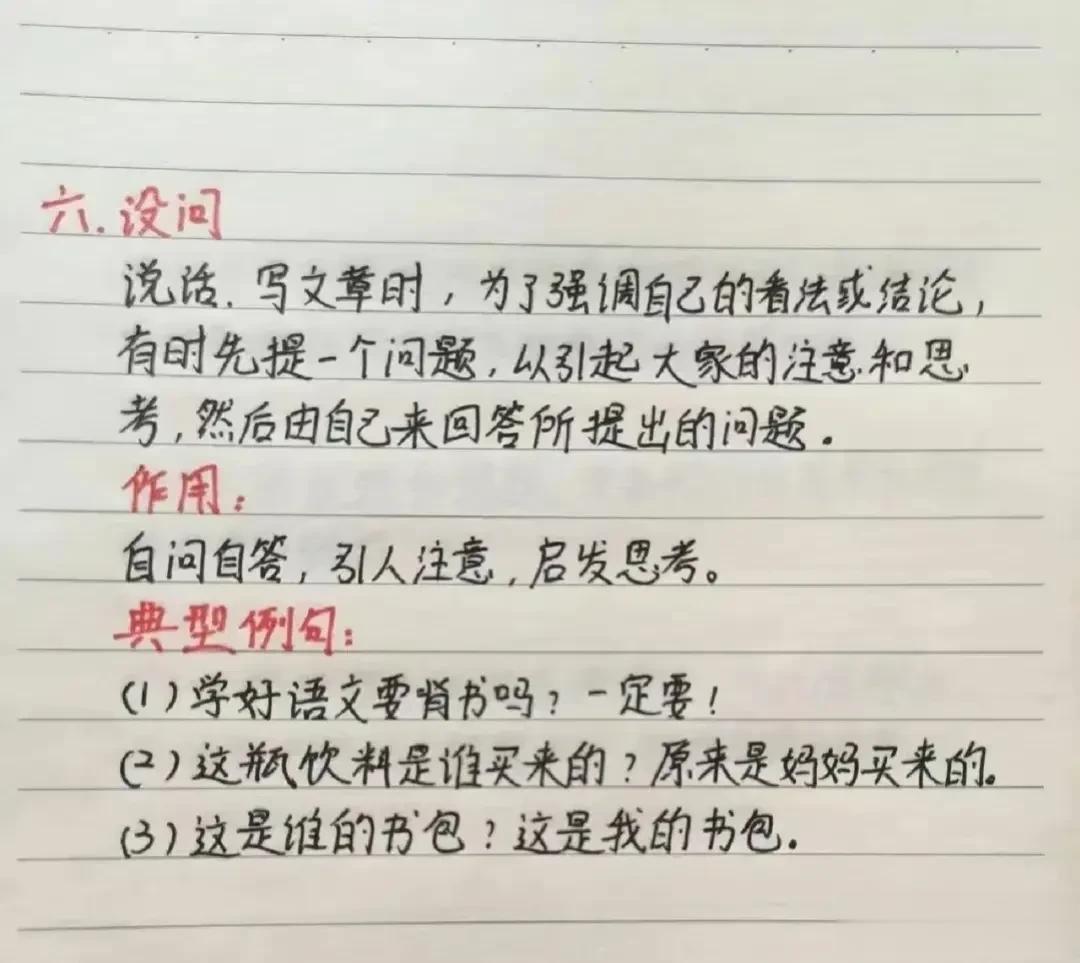 六.设问
说话.写文章时，为了强调自己的看法或结论，
有时先提一个问题，以引起大家的注意和思
考，然后由自己来回答所提出的问题。
作用：
自问自答，引人注意，启发思考。
典型例句：
(1)学好语文要背书吗？一定要！
(2)这瓶饮料是谁买来的？原来是妈妈买来的。
(3)这是谁的书包？这是我的书包。